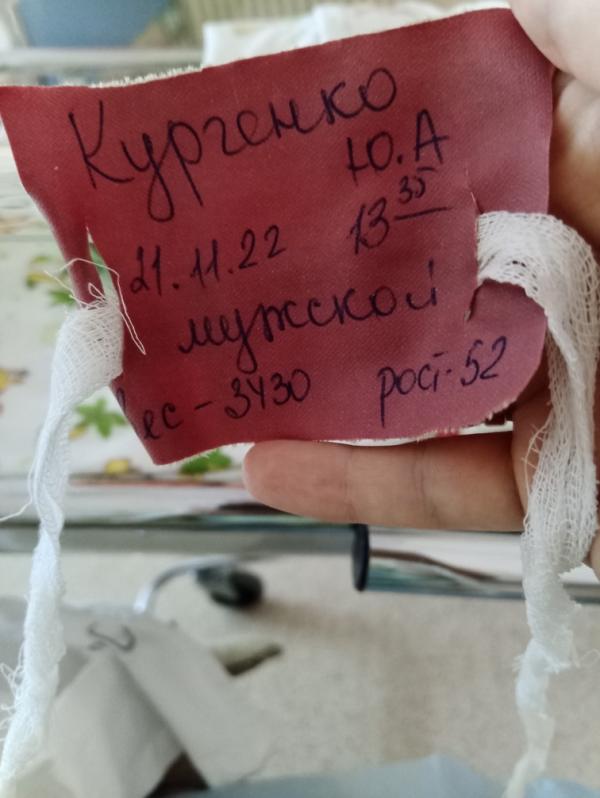 Курченко
Ю.А
21.11.22 13 35
мужской
Вес - 3430 рост-52